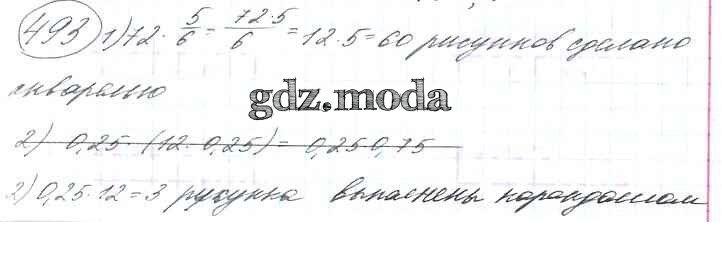 493 1) 72 · 5/6 = 72·5/6 = 12·5 = 60 рисунков сделано
акварелью
gdz.moda
2) 0,25 · (12 · 0,25) = 0,25 0,75
2) 0,25·12 = 3 рисунка выполнены карандашом